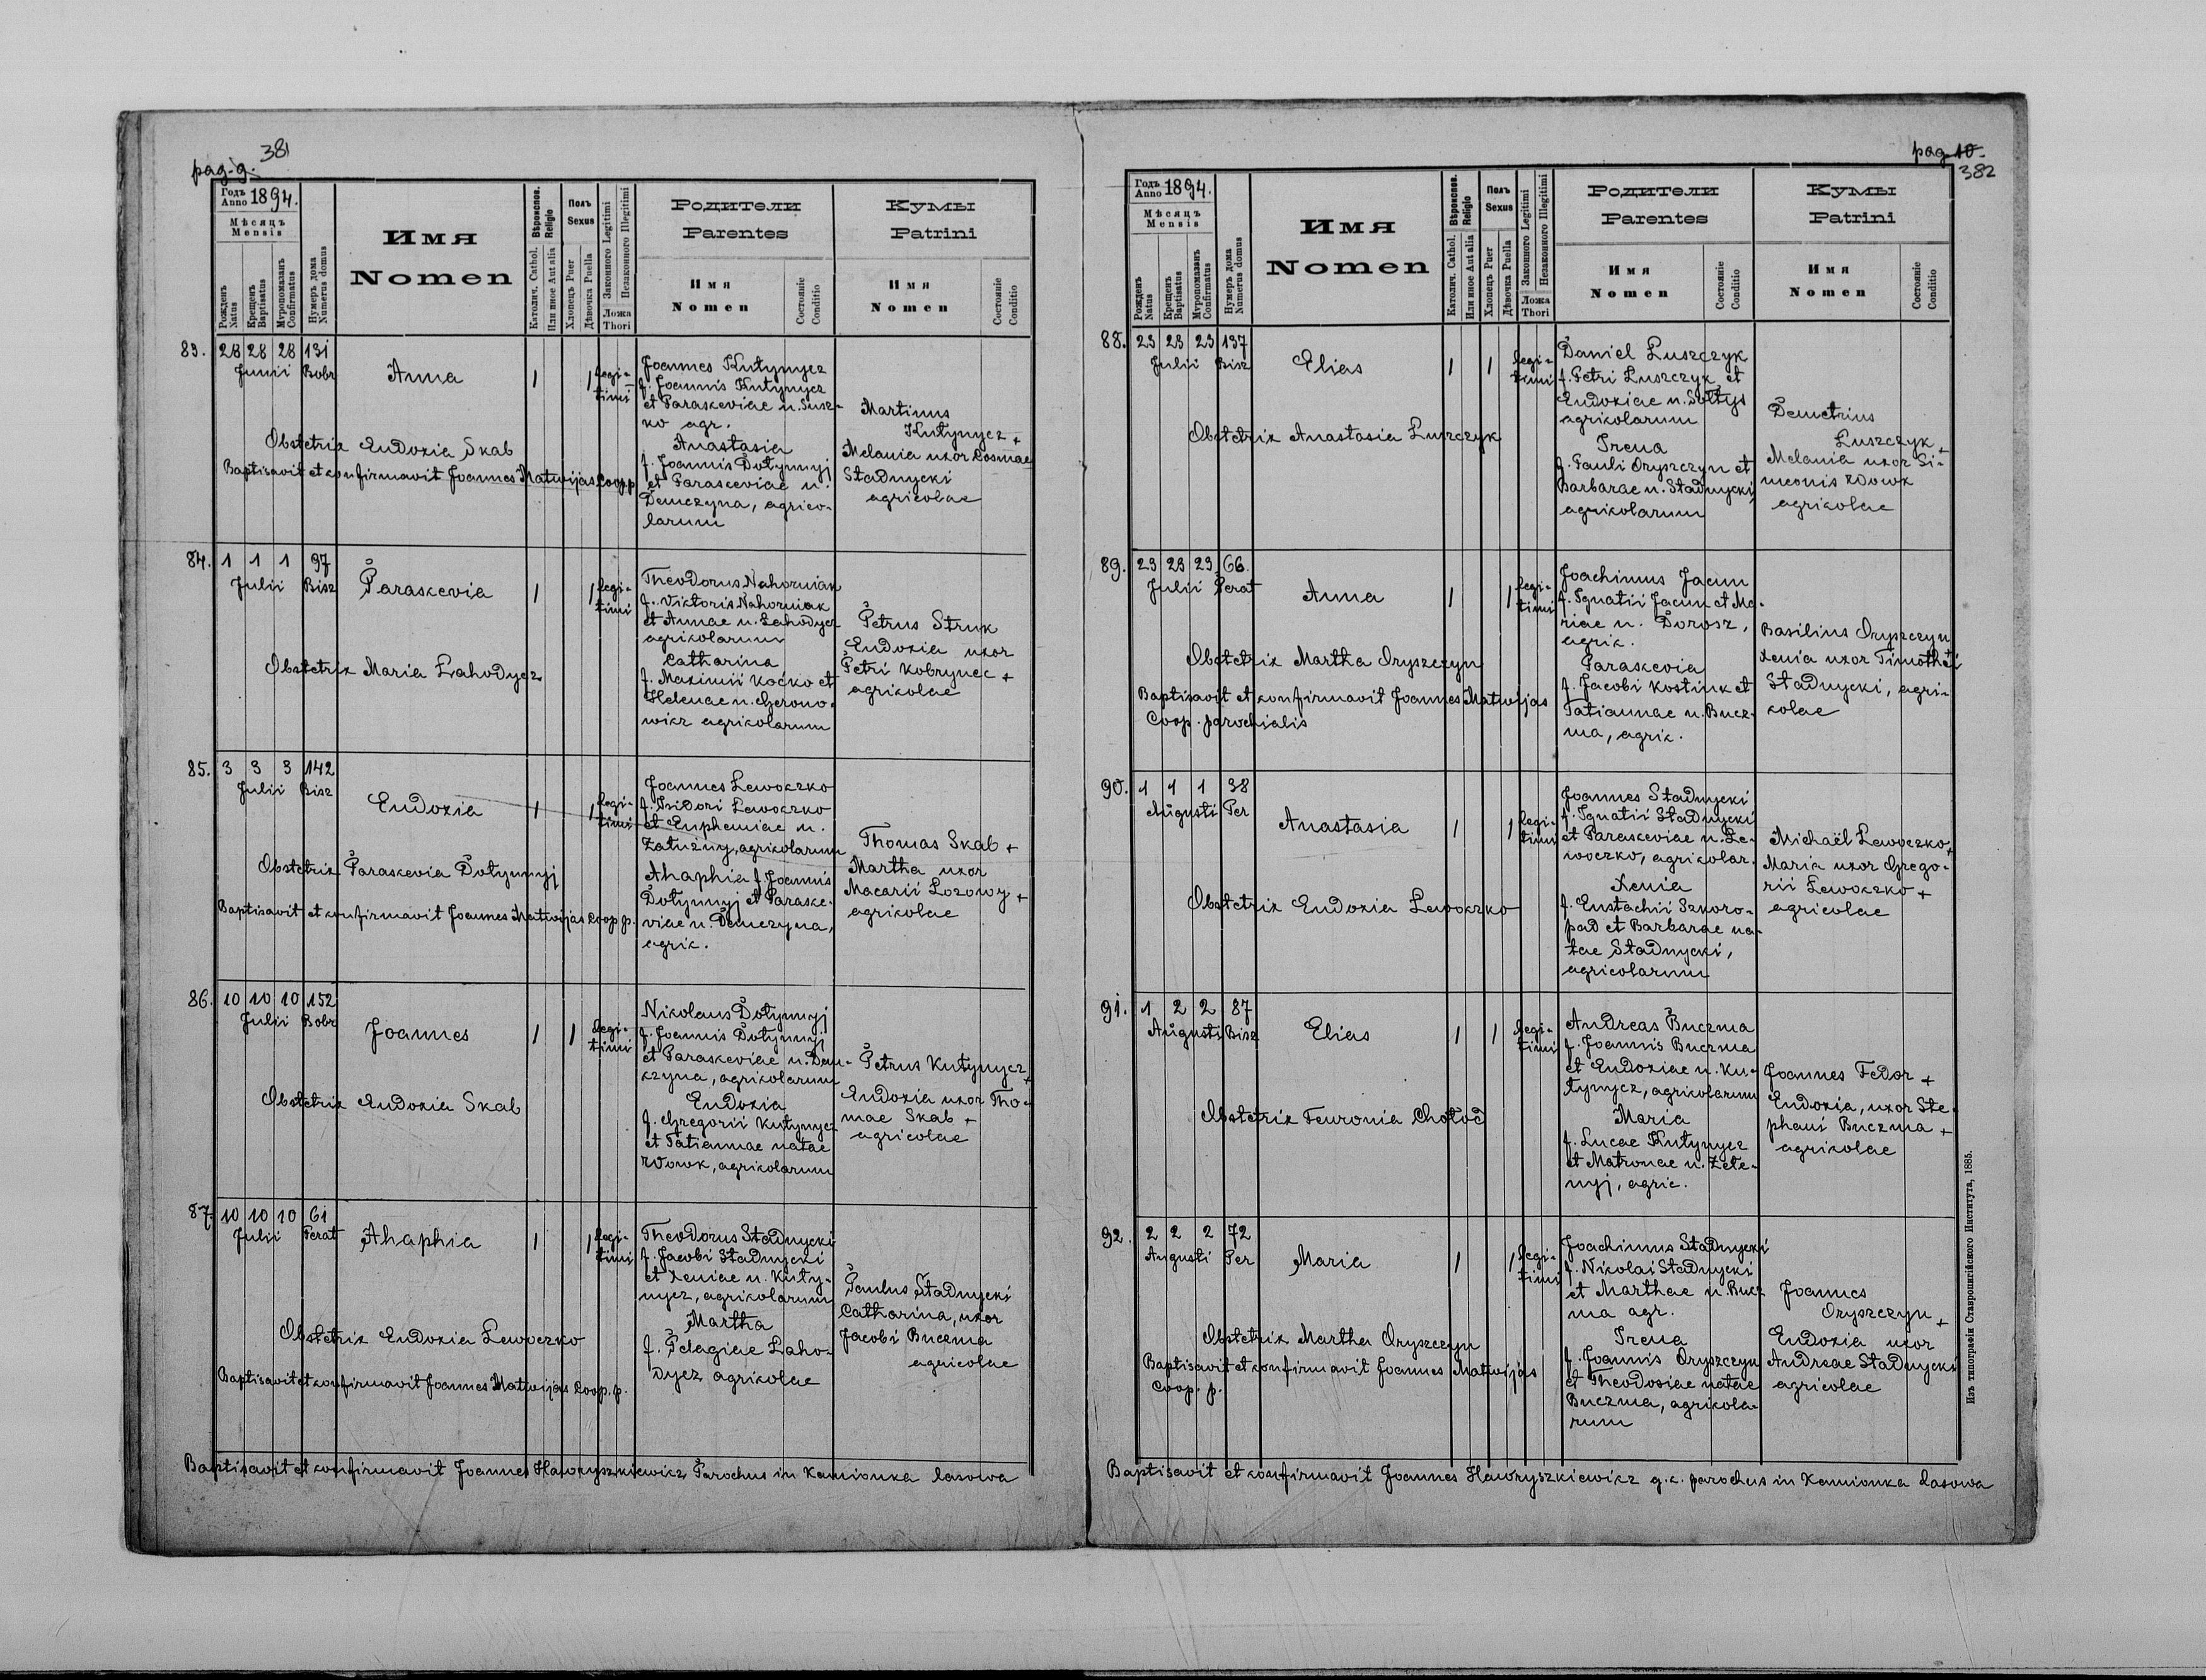 381
pag. 9.
Годъ Anno 1894.
Мѣсяцъ
Mensis
Рожденъ Natus
Крещенъ Baptisatus
Мѵропомазанъ Confirmatus
Нумеръ дома Numerus domus
Имя
Nomen
Вѣроиспов. Religio
Католич. Cathol.
Или иное Aut alia
Полъ
Sexus
Хлопецъ Puer
Дѣвочка Puella
Законного Legitimi
Незаконного Illegitimi
Ложа
Thori
Родители
Parentes
Имя
Nomen
Состояніе
Conditio
Кумы
Patrini
Имя
Nomen
Состояніе
Conditio
83. 28 28 28 131
Junii Bobr
Anna
1 1 legi-
timi
Joannes Kutynycz
f. Joannis Kutynycz
et Paraskeviae n. Susz-
ko agr.
Anastasia
f. Joannis Dotynnyj
et Paraskeviae n.
Demczyna, agrico-
larum
Martinus
Kutynycz +
Melania uxor Cosmae
Stadnycki
agricolae
Obstetrix Eudoxia Skab
Baptisavit et confirmavit Joannes Matwijas Coop. p.
84. 1 1 1 97
Julii Bisz
Paraskevia
1 1 legi-
timi
Theodorus Nahorniak
f. Viktoris Nahorniak
et Annae n. Lahodycz
agricolarum
Catharina
f. Maximii Kocko et
Helenae n. Gerono-
wicz agricolarum
Petrus Struk
Eudoxia uxor
Petri Kobrynec +
agricolae
Obstetrix Maria Lahodycz
85. 3 3 3 142
Julii Bisz
Eudoxia
1 1 legi-
timi
Joannes Lewoczko
f. Isidori Lewoczko
et Euphemiae n.
Zatuzny, agricolarum
Ahaphia f. Joannis
Dotynnyj et Paraske-
viae n. Demczyna,
agric.
Thomas Skab +
Martha uxor
Macarii Lozowy +
agricolae
Obstetrix Paraskevia Dotynnyj
Baptisavit et confirmavit Joannes Matwijas Coop. p.
86. 10 10 10 152
Julii Bobr
Joannes
1 1 legi-
timi
Nikolaus Dotynnyj
f. Joannis Dotynnyj
et Paraskeviae n. Dem-
czyna, agricolarum
Eudoxia
f. Gregorii Kutynycz
et Tatiannae natae
Wowk, agricolarum
Petrus Kutynycz +
Eudoxia uxor Tho-
mae Skab +
agricolae
Obstetrix Eudoxia Skab
87. 10 10 10 61
Julii Perat
Ahaphia
1 1 legi-
timi
Theodorus Stadnycki
f. Jacobi Stadnycki
et Xeniae n. Kuty-
nycz, agricolarum
Martha
f. Pelagiae Laho-
dycz agricolae
Paulus Stadnycki
Catharina, uxor
Jacobi Buczma
agricolae
Obstetrix Eudoxia Lewoczko
Baptisavit et confirmavit Joannes Matwijas Coop. p.
Baptisavit et confirmavit Joannes Hawryszkiewicz Parochus in Kamionka lasowa
pag. 10.
382
Годъ Anno 1894.
Мѣсяцъ
Mensis
Рожденъ Natus
Крещенъ Baptisatus
Мѵропомазанъ Confirmatus
Нумеръ дома Numerus domus
Имя
Nomen
Вѣроиспов. Religio
Католич. Cathol.
Или иное Aut alia
Полъ
Sexus
Хлопецъ Puer
Дѣвочка Puella
Законного Legitimi
Незаконного Illegitimi
Ложа
Thori
Родители
Parentes
Имя
Nomen
Состояніе
Conditio
Кумы
Patrini
Имя
Nomen
Состояніе
Conditio
88. 23 23 23 137
Julii Bisz
Elias
1 1 legi-
timi
Daniel Luszczyk
f. Petri Luszczyk et
Eudoxiae n. Sołtys
agricolarum
Irena
f. Pauli Oryszczyn et
Barbarae n. Stadnycki
agricolarum
Demetrius
Luszczyk +
Melania uxor Si-
meonis Wowk
agricolae
Obstetrix Anastasia Luszczyk
89. 23 23 23 66.
Julii Perat
Anna
1 1 legi-
timi
Joachimus Jacun
f. Ignatii Jacun et Ma-
riae n. Dorosz,
agric.
Paraskevia
f. Jacobi Kostiuk et
Tatiannae n. Bucz-
ma, agric.
Basilius Oryszczyn
Xenia uxor Timothei
Stadnycki, agri-
colae
Obstetrix Martha Oryszczyn
Baptisavit et confirmavit Joannes Matwijas
Coop. parochialis
90. 1 1 1 38
Augusti Per
Anastasia
1 1 legi-
timi
Joannes Stadnycki
f. Ignatii Stadnycki
et Paraskeviae n. Le-
woczko, agricolar.
Xenia
f. Eustachii Szkoro-
pad et Barbarae na-
tae Stadnycki,
agricolarum
Michaël Lewoczko +
Maria uxor Grego-
rii Lewoczko +
agricolae
Obstetrix Eudoxia Lewoczko
91. 1 2 2 87
Augusti Bisz
Elias
1 1 legi-
timi
Andreas Buczma
f. Joannis Buczma
et Eudoxiae n. Ku-
tynycz, agricolarum
Maria
f. Lucae Kutynycz
et Matronae n. Zele-
nyj, agric.
Joannes Fedor +
Eudoxia, uxor Ste-
phani Buczma +
agricolae
Obstetrix Fewronia Chołod
92. 2 2 2 72
Augusti Per
Maria
1 1 legi-
timi
Joachimus Stadnycki
f. Nikolai Stadnycki
et Marthae n. Bucz
ma agr.
Irena
f. Joannis Oryszczyn
et Theodosiae natae
Buczma, agricola-
rum
Joannes
Oryszczyn +
Eudoxia uxor
Andreae Stadnycki
agricolae
Obstetrix Martha Oryszczyn
Baptisavit et confirmavit Joannes Matwijas
Coop. p.
Baptisavit et confirmavit Joannes Hawryszkiewicz g. c. parochus in Kamionka Lasowa
Изъ типографіи Ставропигійского Института, 1885.